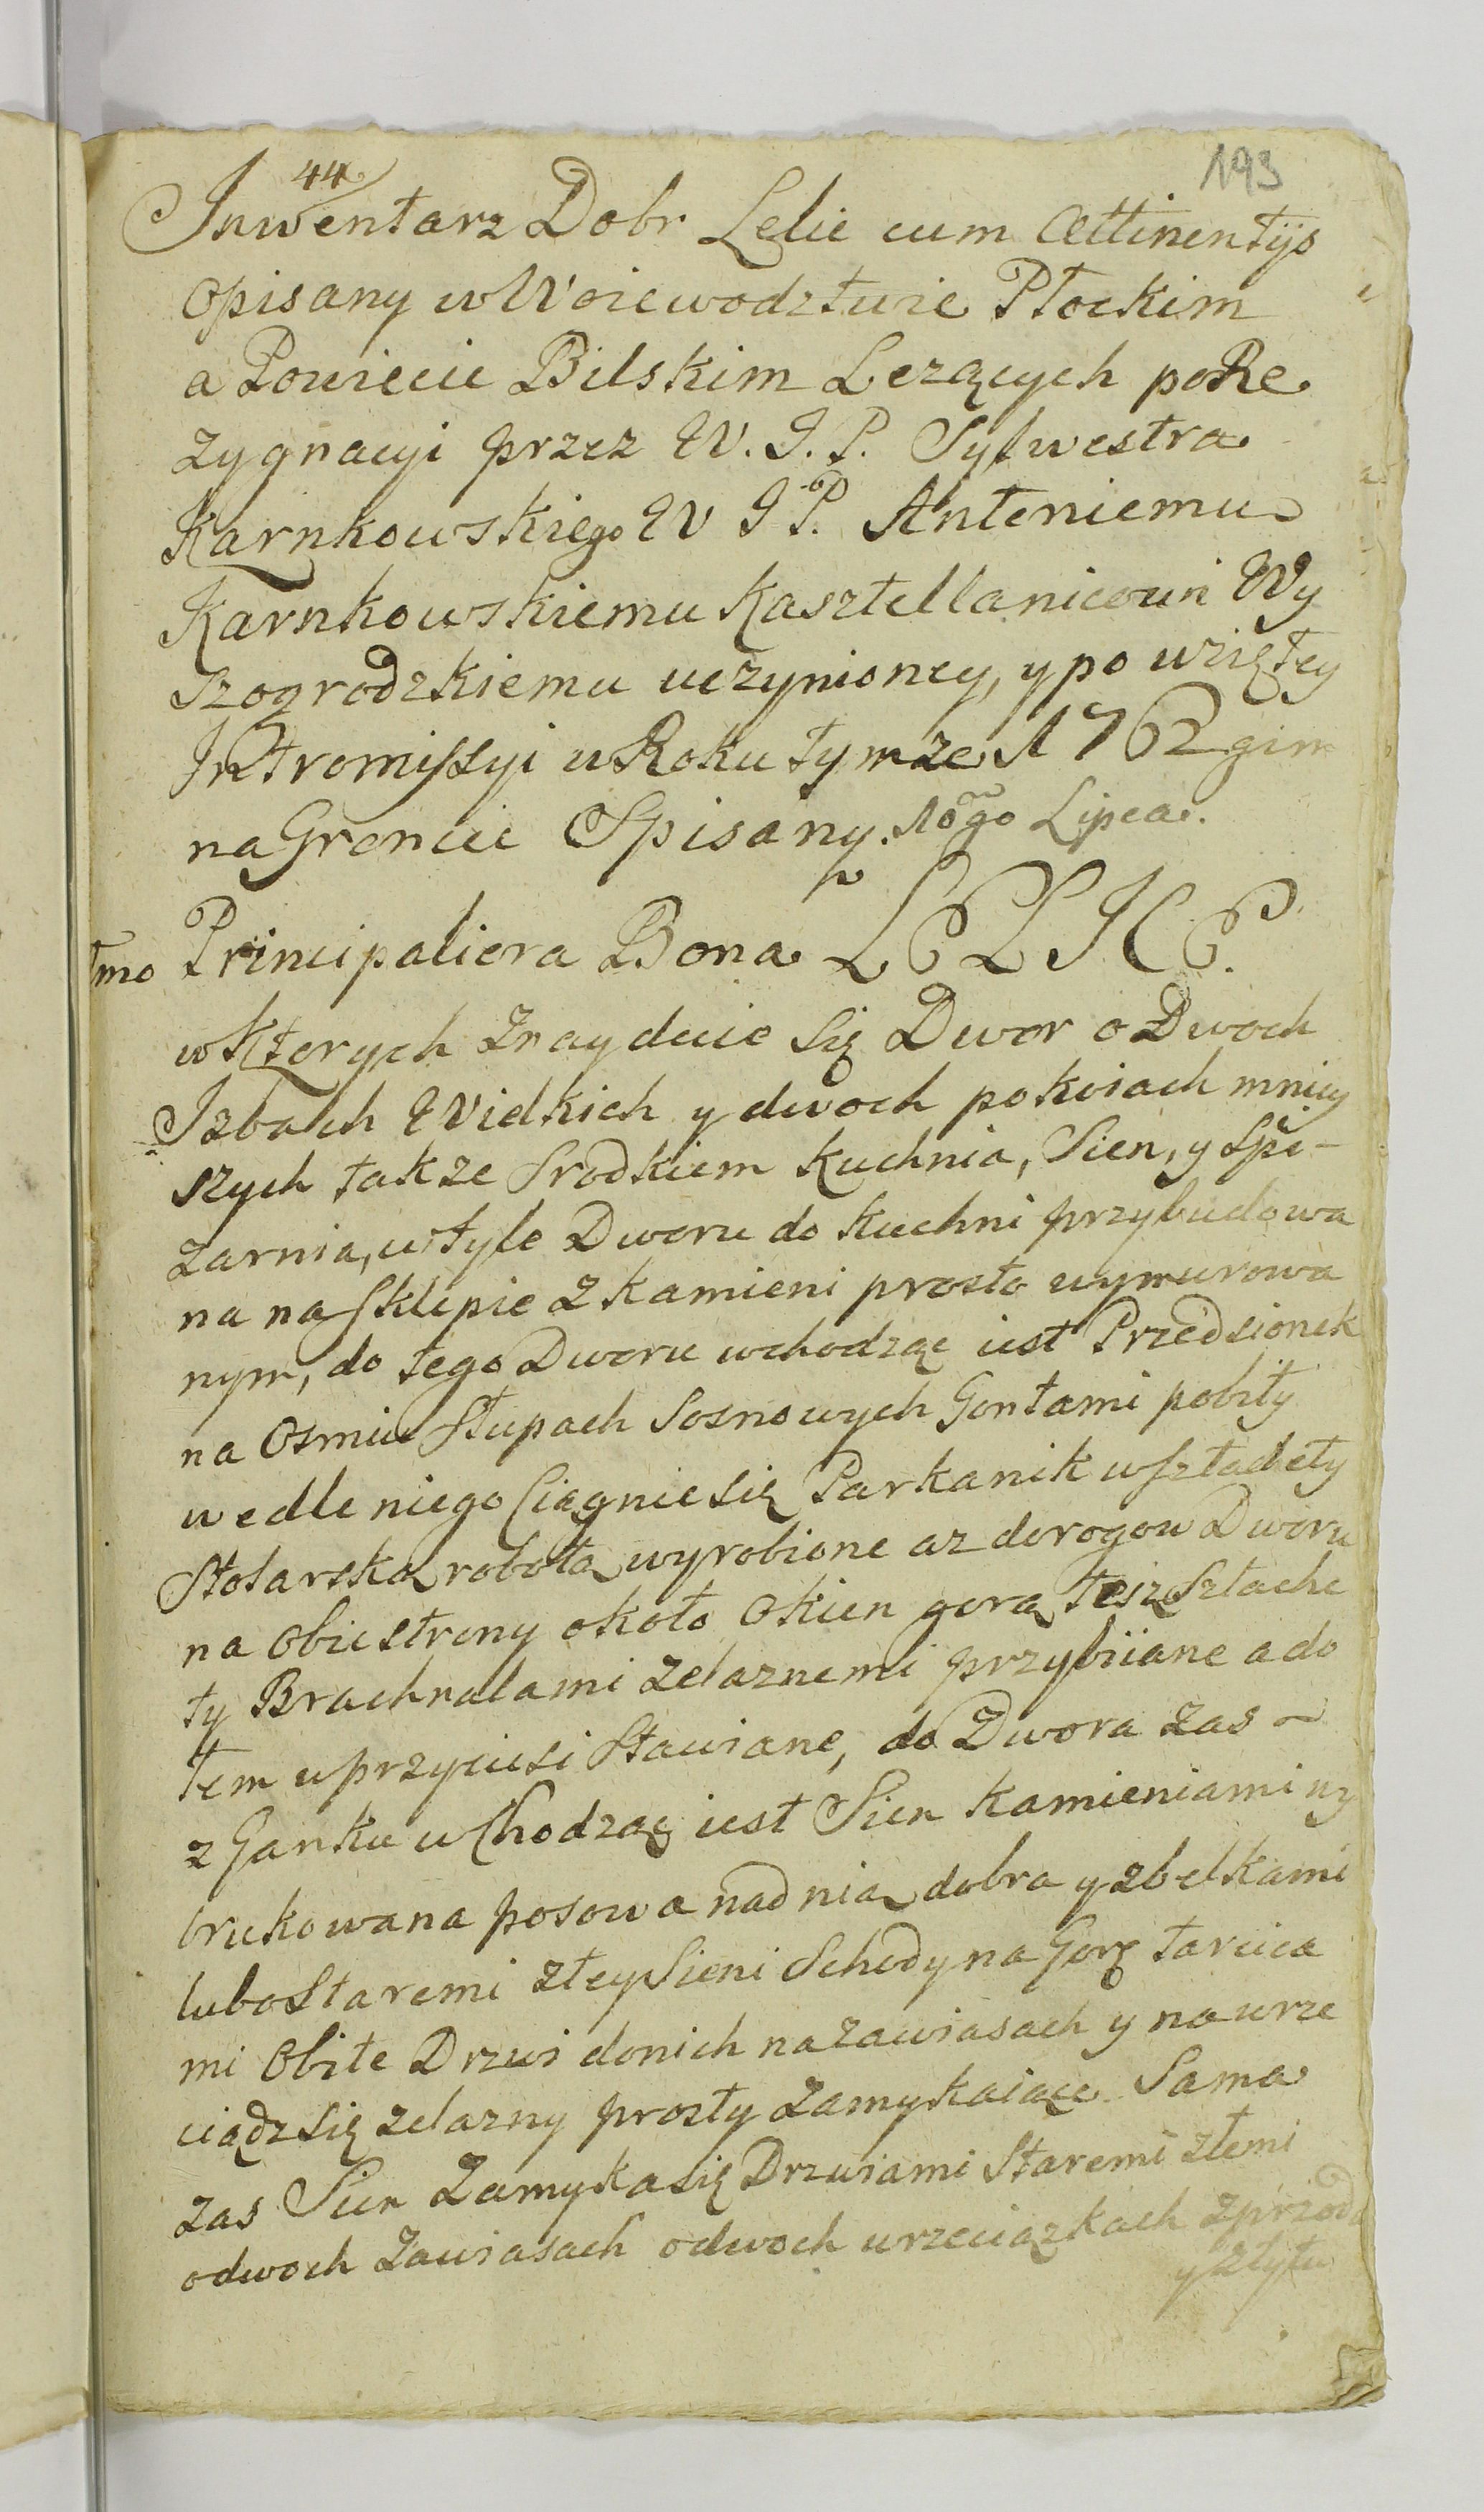 44
193
Inwentarz Dobr Lelic cum Attinentÿs
Opisany w Woiewodztwie Płockim
a Powiecie Bilskim Lezących po Re
zygnacyi przez W. J. P. Sylwestra
Karnkowskiego W J P. Antoniemu
Karnkowskiemu Kasztellanicowi Wy
szogrodzkiemu uczynioney, y po wziętey
Intromissyi w Roku tymze 1762gim
na Groncie Spisany. 10go Lipca.
1mo Principaliora Bona LELICE.
w Ktorych Znayduie się Dwor o Dwoch
Izbach Wielkich y dwoch pokoiach mniey
szych takze Srodkiem Kuchnia, Sien, y Spi-
zarnia, w tyle Dworu do Kuchni przybudowa
na na Sklepie z Kamieni prosto wymurowa
nym, do tego Dworu wchodząc iest Przedsionek
na Osmiu Słupach Sosnowych Gontami pobity
wedle niego Ciągnie się Parkanik w sztachety
Stolarską robotą wyrobione az do rogow Dworu
na obie strony około Okien gorą tesz Sztache
ty Brachnalami zelaznemi przybiiane a do
łem w przyciesi Stawiane, do Dwora zas ~
z Ganku w Chodząc iest Sien kamieniami wy
brukowana posowa nad nią dobra y z belkami
lubo Staremi z tey Sieni Schody na Gorę tarcica
mi Obite Drzwi do nich na zawiasach y na wrze
ciądz się zelazny prosty zamykaiące. Sama
zas Sien Zamyka się Drzwiami Staremi złemi
o dwoch Zawiasach o dwoch wrzeciązkach z przodu
y z tyłu